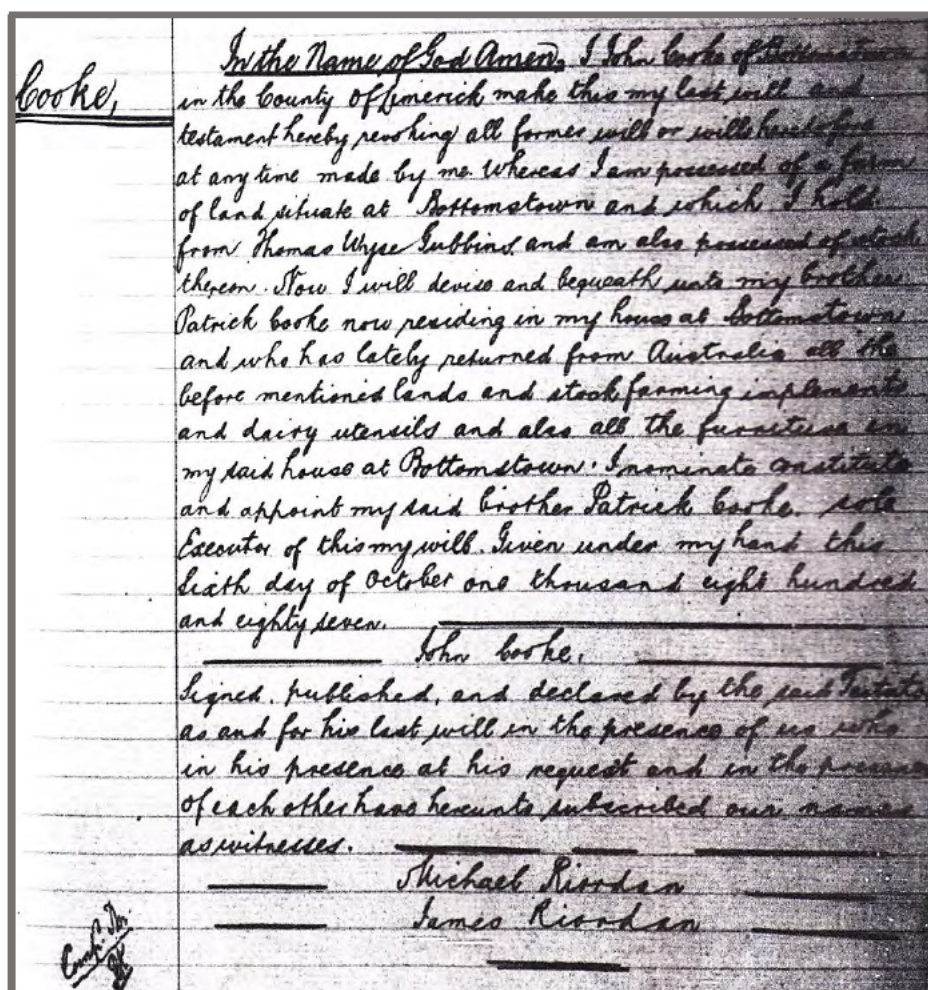 Cooke,
In the Name of God Amen, I John Cooke of Bottomstown
in the County of Limerick make this my last will and
testament hereby revoking all former will or wills heretofore
at any time made by me. Whereas I am possessed of a farm
of land situate at Bottomstown and which I hold
from Thomas Wyse Gubbins and am also possessed of stock
thereon. Now I will devise and bequeath unto my brother
Patrick Cooke now residing in my house at Bottomstown
and who has lately returned from Australia all the
before mentioned lands and stock farming implements
and dairy utensils and also all the furniture in
my said house at Bottomstown. I nominate constitute
and appoint my said brother Patrick Cooke. sole
Executor of this my will. Given under my hand this
Sixth day of October one thousand eight hundred
and eighty seven.
John Cooke,
Signed, published, and declared by the said Testator
as and for his last will in the presence of us who
in his presence at his request and in the presence
of each other have hereunto subscribed our names
as witnesses.
Michael Riordan
James Riordan